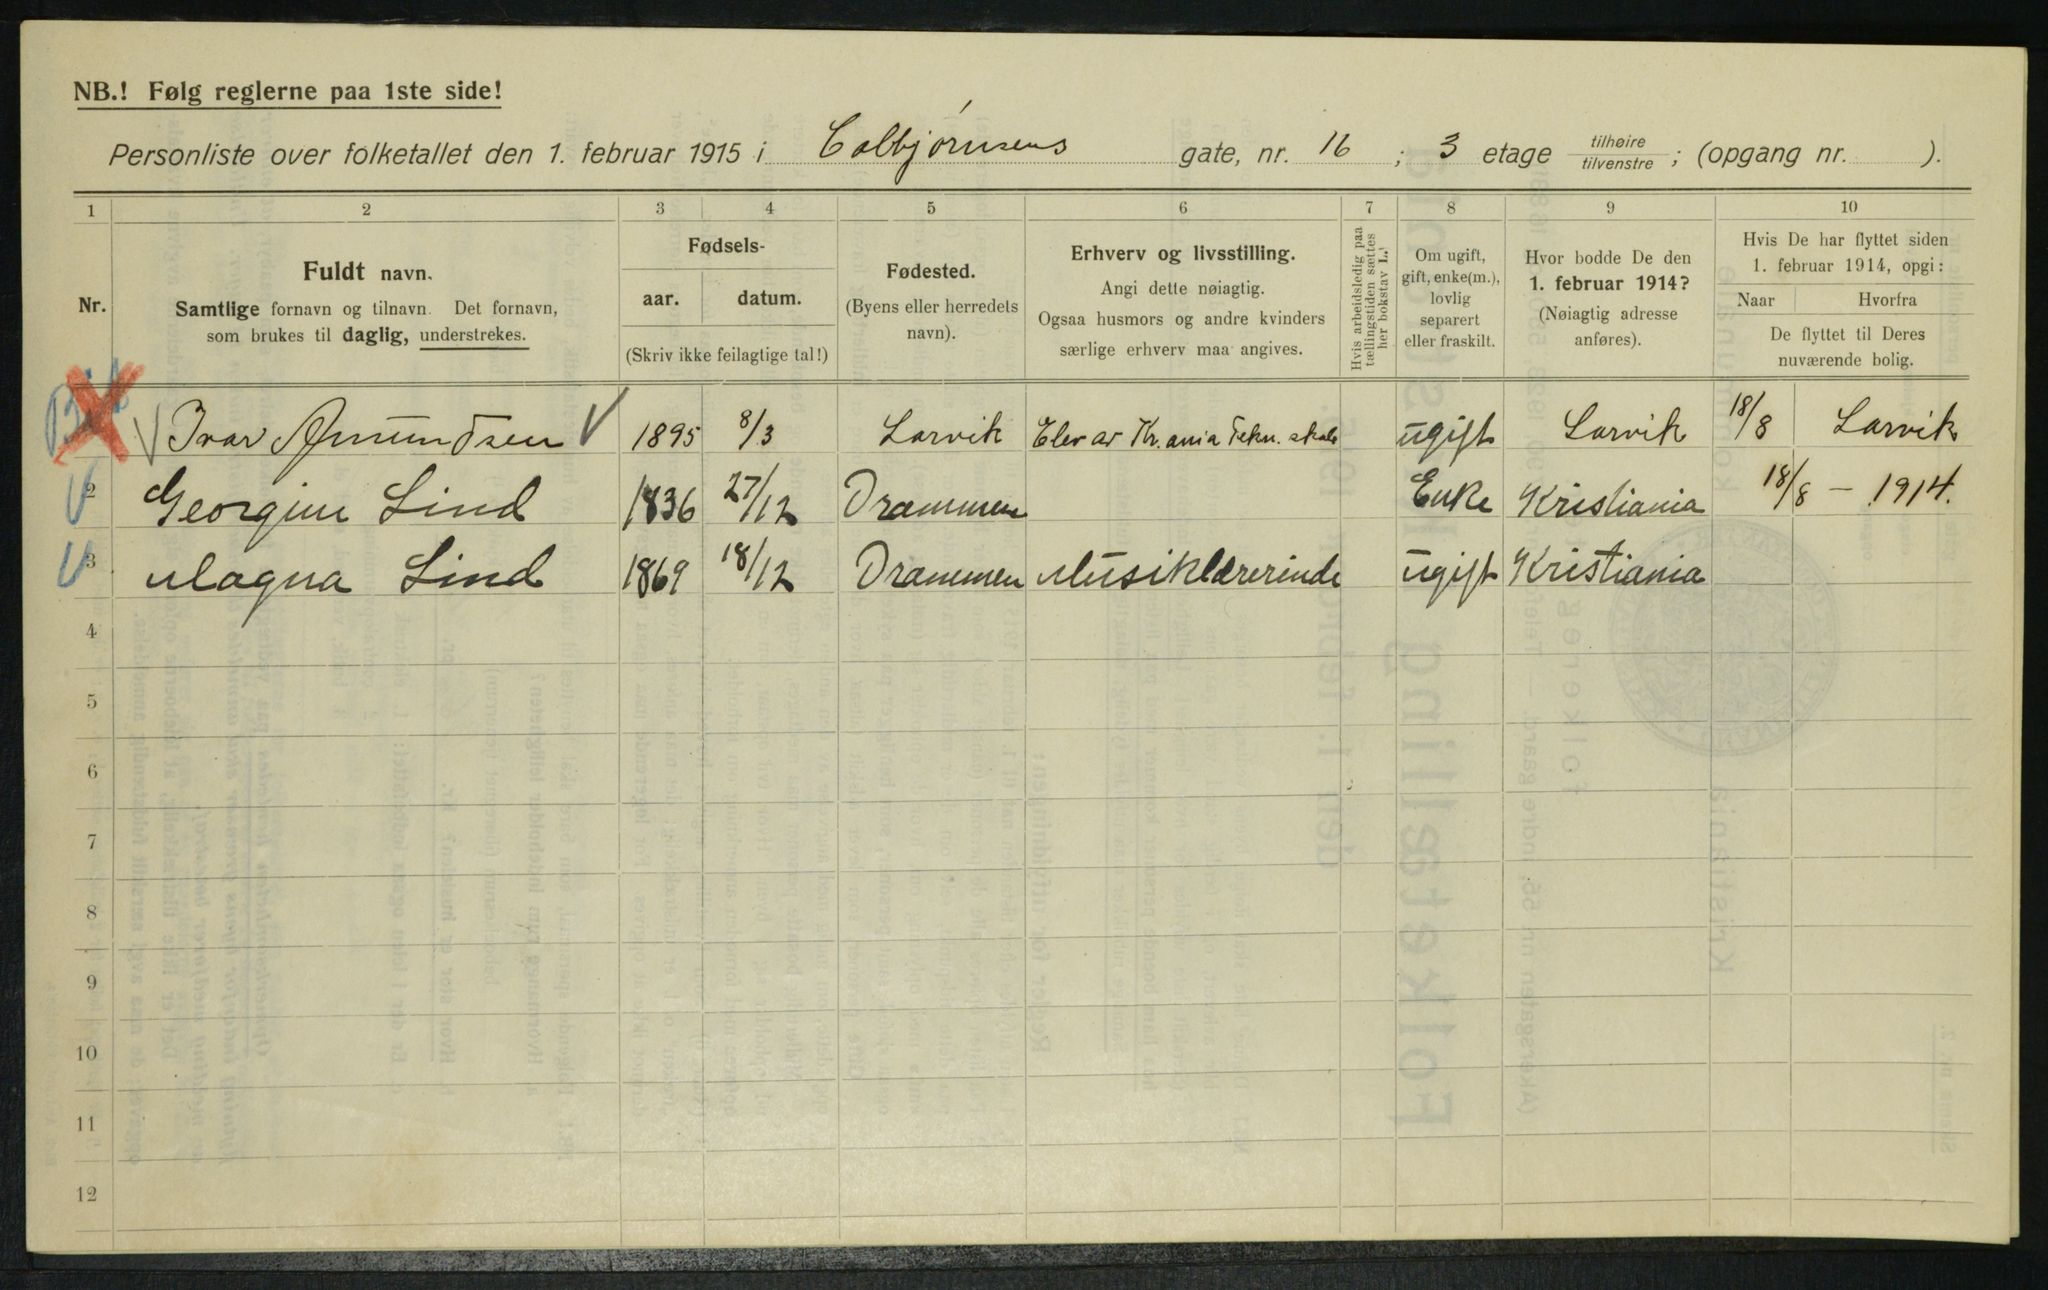 NB.! Følg reglerne paa 1ste side!
Personliste over folketallet den 1. februar 1915 i Colbjørnsens gate, nr. 16 ; 3 etage tilhøire tilvenstre ; (opgang nr. ).
1 2 3 4 5 6 7 8 9 10
Nr.
Fuldt navn.
Samtlige fornavn og tilnavn. Det fornavn,
som brukes til daglig, understrekes.
Fødsels-
aar. datum.
(Skriv ikke feilagtige tal!)
Fødested.
(Byens eller herredets
navn).
Erhverv og livsstilling.
Angi dette nøiagtig.
Ogsaa husmors og andre kvinders
særlige erhverv maa angives.
Hvis arbeidsledig paa
tællingstiden sættes
her bokstav L.
Om ugift,
gift, enke(m.),
lovlig
separert
eller fraskilt.
Hvor bodde De den
1. februar 1914?
(Nøiagtig adresse
anføres).
Hvis De har flyttet siden
1. februar 1914, opgi:
Naar Hvorfra
De flyttet til Deres
nuværende bolig.
Ivar Amundsen 1895 8/3 Larvik Elev av Kr.ania Tekn. skole ugift Larvik 18/8 Larvik
2 Georgine Lind 1836 27/12 Drammen Enke Kristiania 18/8 — 1914.
3 Magna Lind 1869 18/12 Drammen Musiklærerinde ugift Kristiania
4
5
6
7
8
9
10
11
12